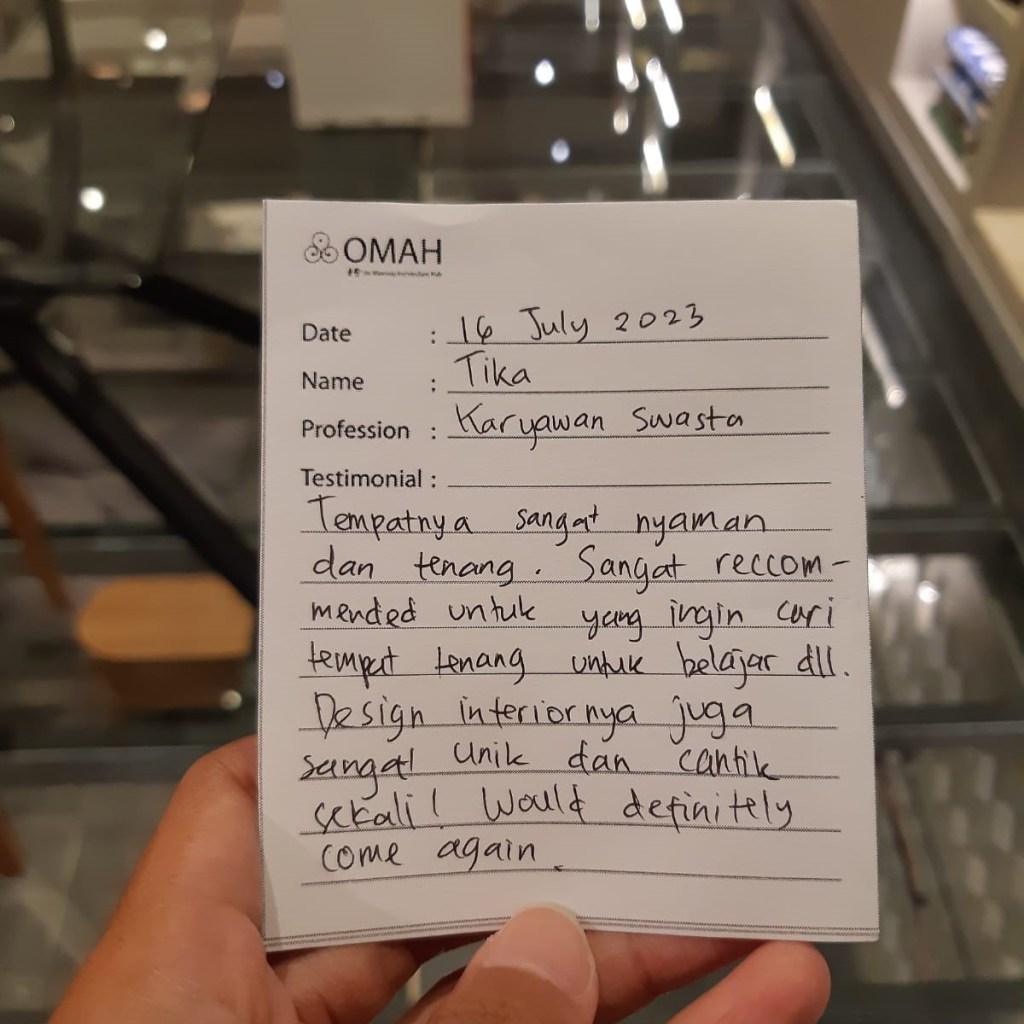 OMAH
Date : 16 July 2023
Name : Tika
Profession : Karyawan Swasta
Testimonial :
Tempatnya sangat nyaman
dan tenang. Sangat reccom-
mended untuk yang ingin cari
tempat tenang untuk belajar dll.
Design interiornya juga
sangat unik dan cantik
sekali! Would definitely
come again.